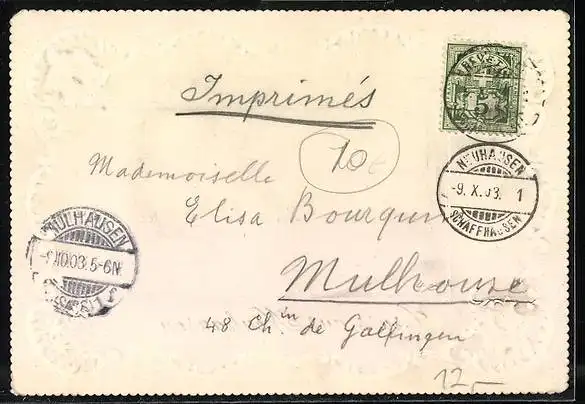 Imprimés
10
Mademoiselle
Elisa Bourquin
Mulhouse
48 Chin de Galfingen
12,-
5
NEUHAUSEN
-9. X. 03. 1
SCHAFFHAUSEN
MULHAUSEN
10.03. 5-6N